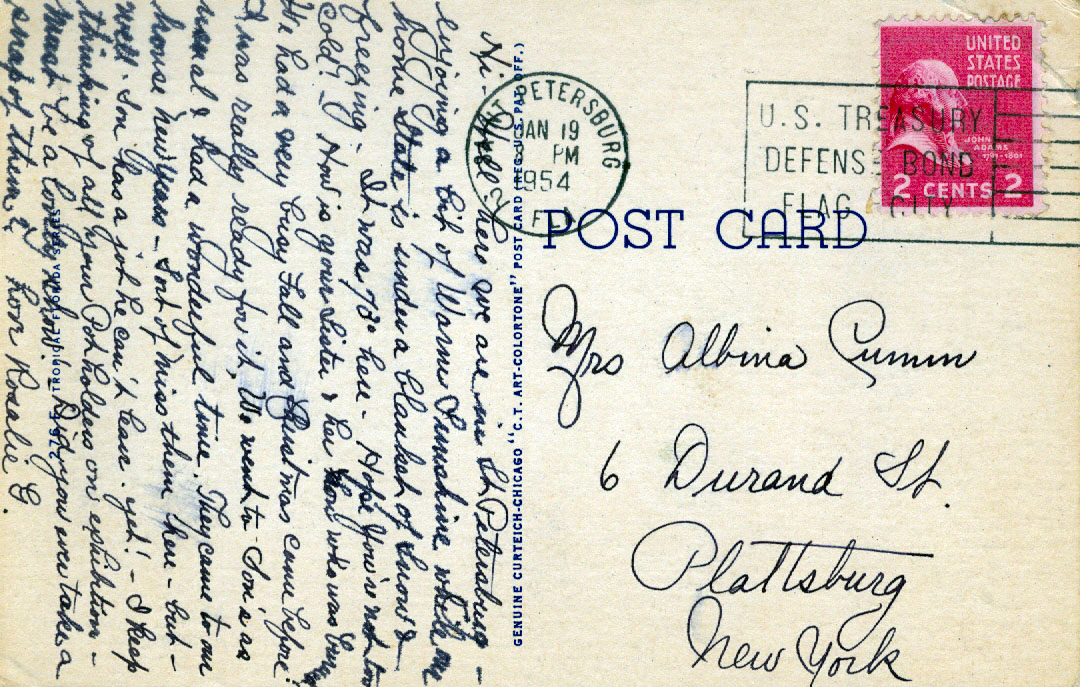 Hi - Well - here we are in St Petersburg -
enjoying a bit of Warm Sunshine while my
home State is under a blanket of Snow &
freezing - It was 78° here - Hope you're not too
Cold! How is your Sister & her Son who was
We had a very busy Fall and Christmas came before
I was really ready for it, We went to Son's as
usual & had a wonderful time. They came to our
house New Years - Sort of miss them here - but -
well - Son has a job he can't leave - yet! - I keep
thinking of all your Pot holders on exhibition -
must be a lovely - Did you ever take a
snap of them? Love Rosalie E.
TROPICAL FLORIDA SERIES
GENUINE CURTEICH-CHICAGO "C.T. ART-COLORTONE" POST CARD (REG. U.S. PAT. OFF.)
ST. PETERSBURG
JAN 19
PM
1954
FLA
U.S. TREASURY
DEFENSE BOND
FLAG CITY
UNITED
STATES
POSTAGE
JOHN
ADAMS
1797-1801
2 CENTS 2
POST CARD
Mrs Albina Cumm
6 Durand St.
Plattsburg
New York